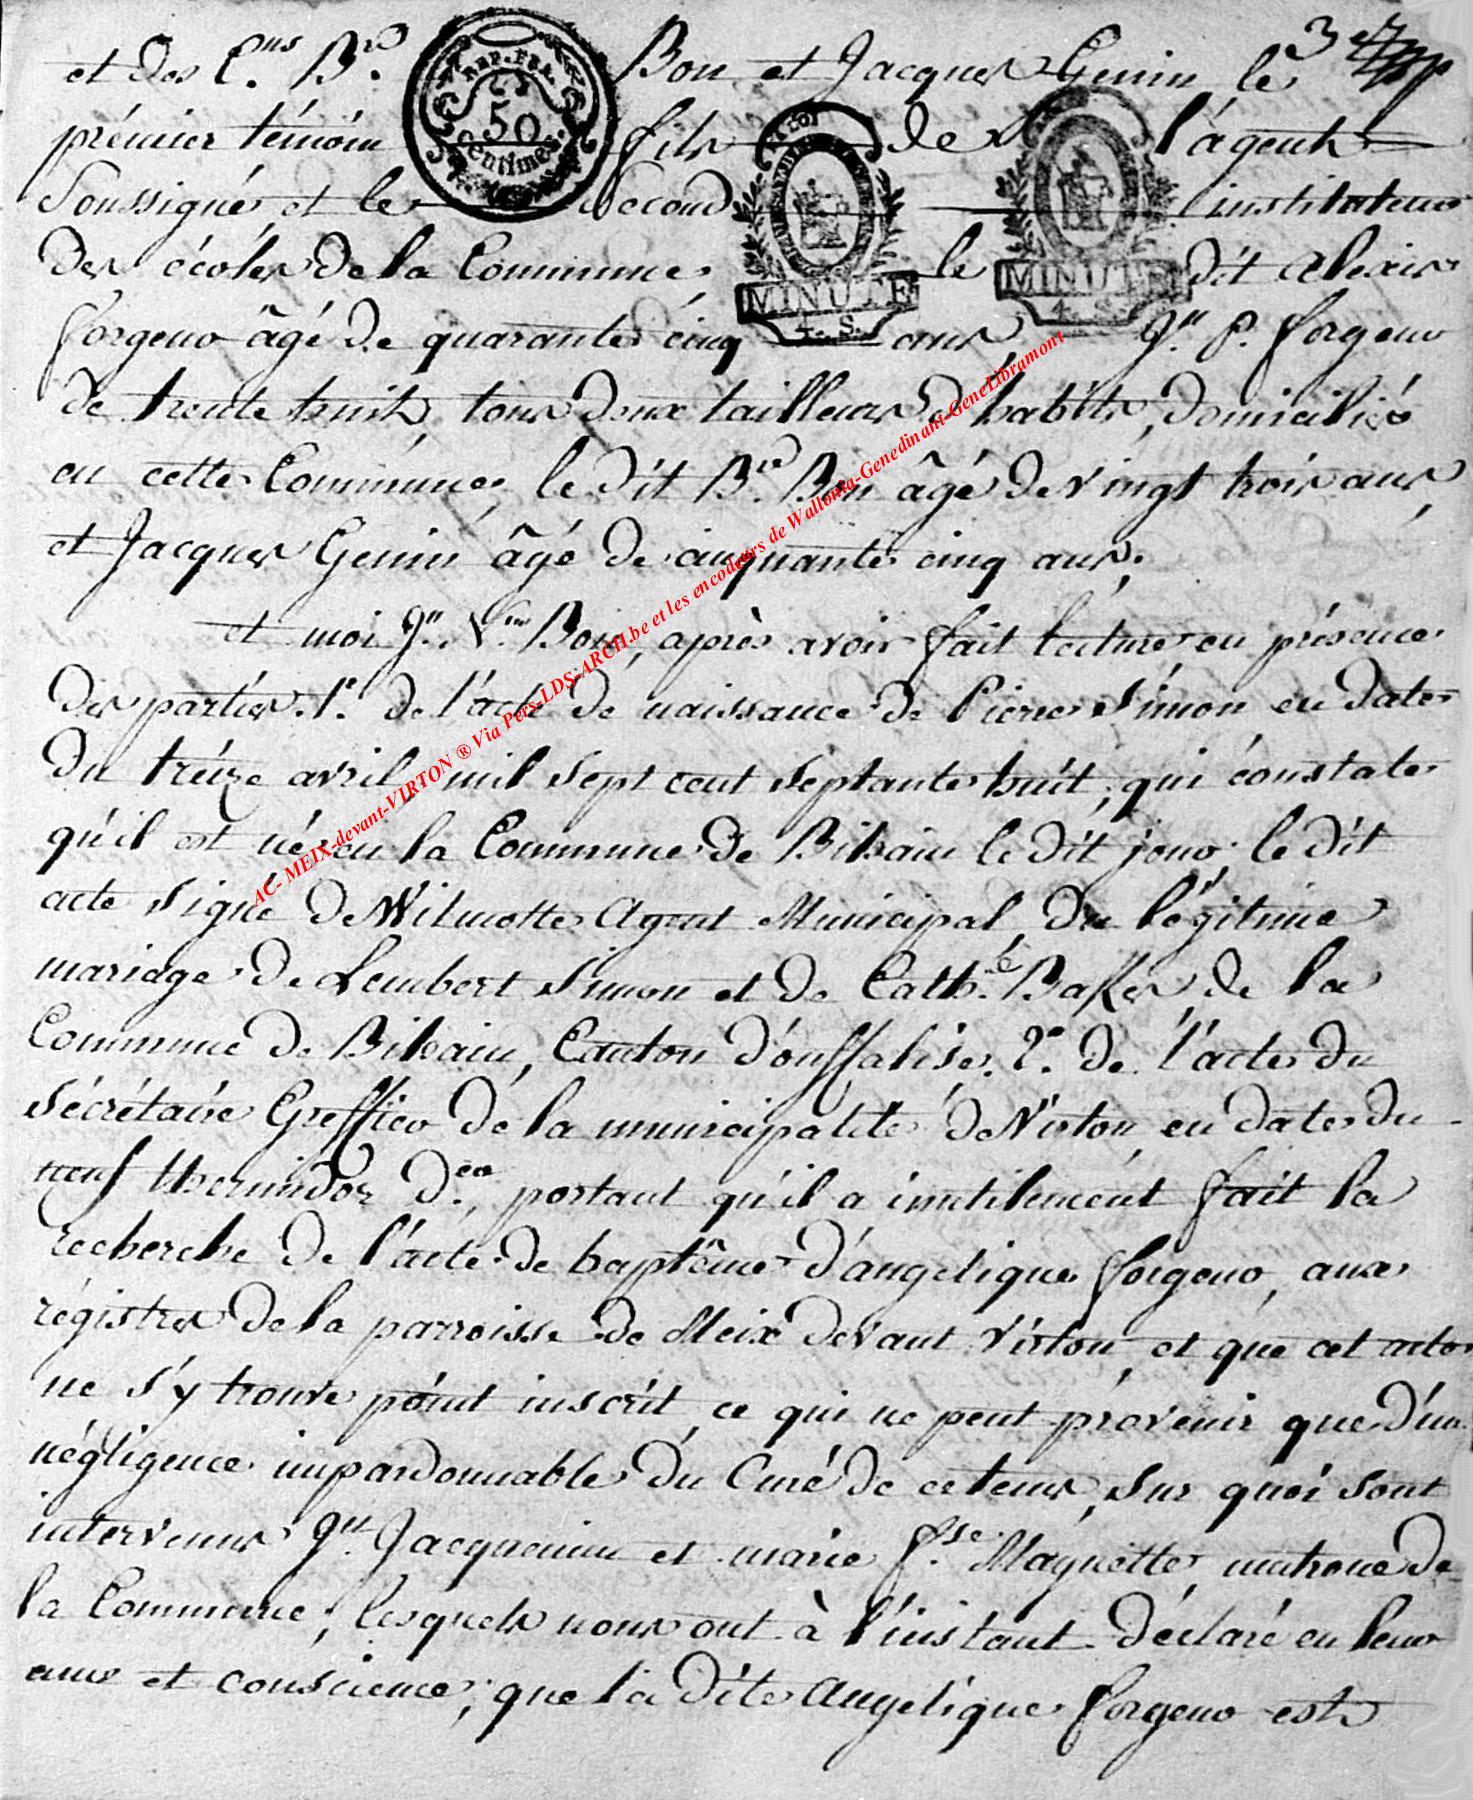 et des C.ns B.rd Bon et Jacques Genin, le 3er
prémier témoin fils de l'agent
Soussigné, et le second instituteur
des écoles de la Commune, le dit Alexis
forgeur âgé de quarante cinq ans, J.n P. forgeur
de trente huit, tous deux tailleurs d'habits, domiciliés
en cette Commune, le dit B.rd Bon âgé de vingt trois ans,
et Jacques Genin âgé de cinquante cinq ans;
et moi J.n Bon, après avoir fait lecture en présence
des parties. 1.° de l'acte de naissance de Pierre Simon en date
du tréize avril mil sept cent septante huit, qui constate
qu'il est né en la Commune de Bihain le dit jour, le dit
acte signé De Wilmotte Agent Municipal, du légitime
mariage de Lembert Simon et de Cath.e Baker de la
Commune de Bihain, Canton d'ouffalise. 2.° de l'acte du
sécrétaire Greffier de la municipalité de Virton en date du
neuf thermidor d.er, portant qu'il a inutilement fait la
recherche de l'acte de baptême d'angelique forgeur, aux
régistres de la parroisse de Meix devant Virton, et que cet acte
ne s'y trouve point inscrit, ce qui ne peut provenir que d'un
négligence impardonnable du Curé de ce tems, sur quoi sont
intervenus J.n Jacquemin et marie f.se Maquette, matrone de
la Commune, lesquels nous ont à l'instant déclaré en leur
ame et conscience, que la dite Angelique forgeur est
REP. FRA.
50
centimes.
MINUTE
4. S.
MINUTE
4. S.
AC- MEIX-devant-VIRTON ® Via Pers-LDS-ARCH.be et les encodeurs de Wallonia-Genedinant-GeneLibramont